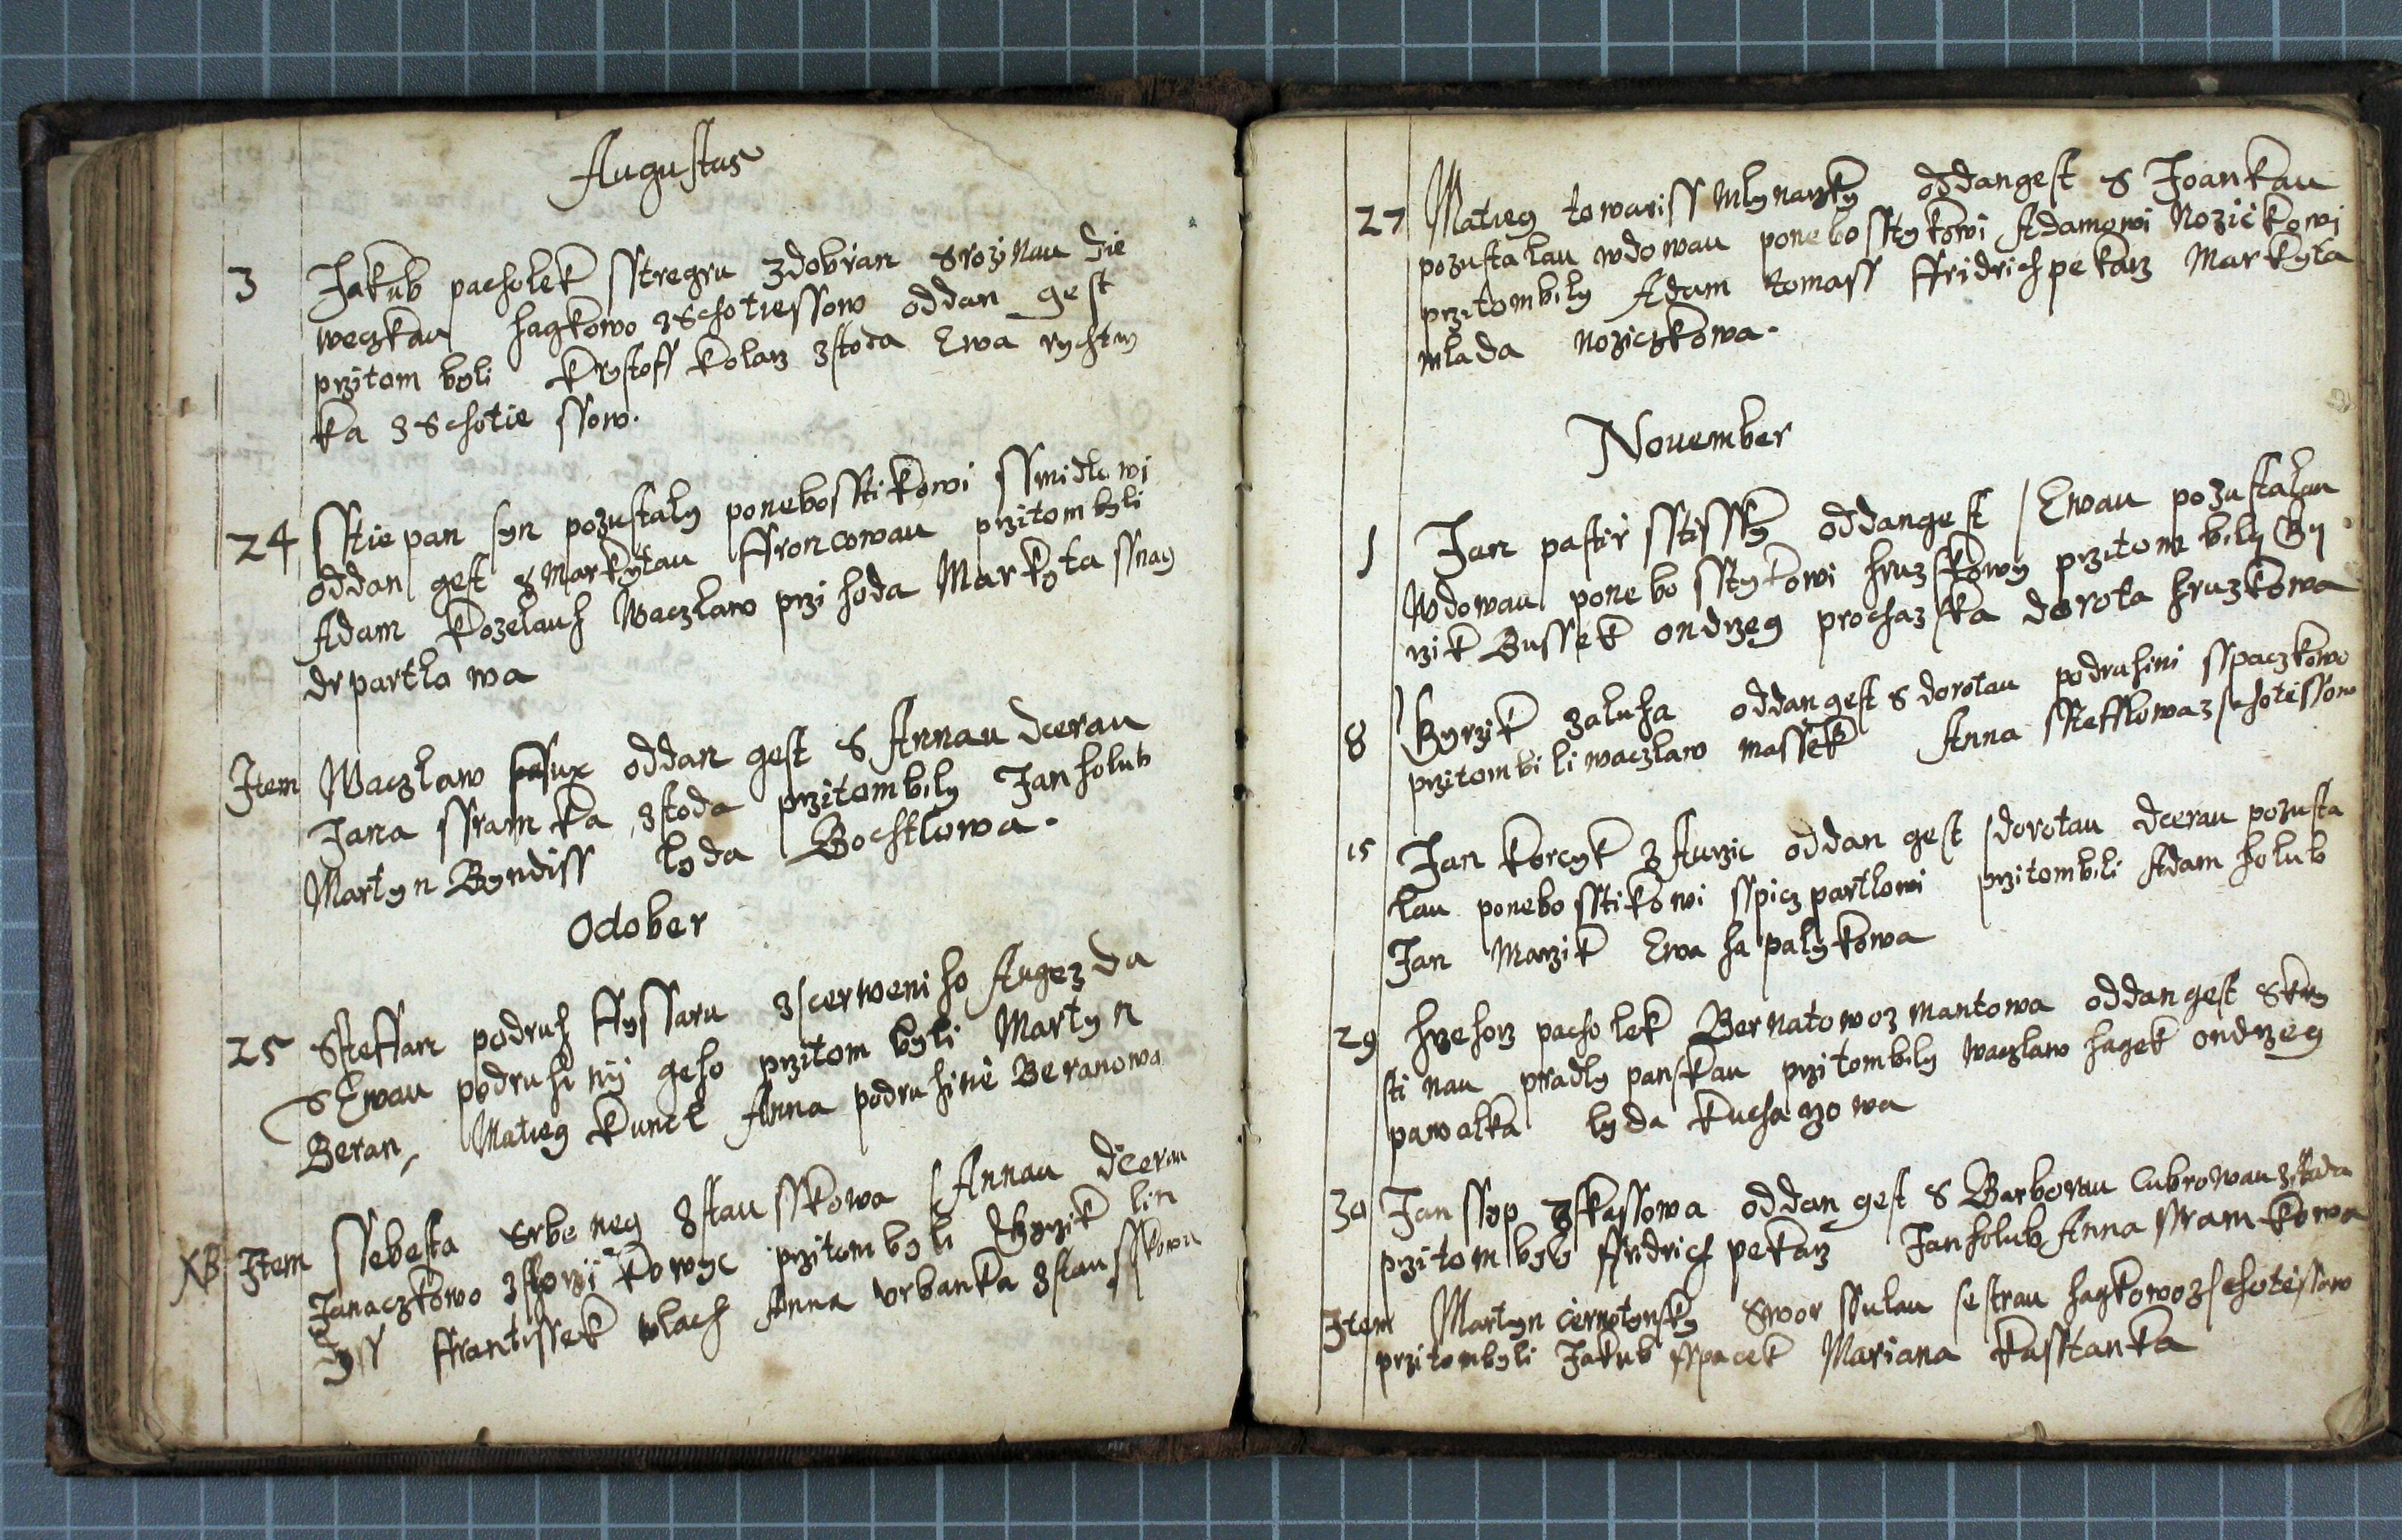 Augustus
3 Jakub pacholek sstregru zdobrzan s rozinau die
weczkau hagkowo z Schotiessow oddan gest
przitom byli Krystoff kolarz zstoda Ewa rychtrzy
ka z Schotie ssow.
24 Sstiepan syn pozustaly ponebosstikowi ssmidlowi
oddan gest z Markytau Froncowau przitom byli
Adam Kozelauh Waczlaw przihoda Markyta
drpartlowa
Item Waczlaw oddan gest s Annau dcerau
Jana ssramka zstoda przitombily Jan holub
Martyn Byndiss lyda Bochtlowa.
October
25 Steffan podruh ffyssaru zscerweniho Augezda
s Ewau podruhinij geho przitom byli Martyn
Beran, Matieg Kuncl Anna podruhine Beranowa
XB Item ssebesta Srbeneg zstausskowa s Annau dceru
Janaczkowo przitom byli lin
Frantissek wlach Anna vrbanka zstausskowa
27 Matieg towariss Mlynarzky oddangest s Joankau
pozustalau wdowau ponebosstykowi Adamowi Nozickowi
przitombily Adam tomass ffridrich pekarz Markyta
mlada noziczkowa.
November
1 Jan pastir sstissky oddangest s Ewau pozustalau
Wdowau ponebosstykowi hruzkowy przitom bily Gy
rzik Bussek ondrzeg prochazka dorota hruzkowa
8 Gyrzik zaluha oddangest s dorotau podruhini sspaczkowo
przitombili waczlaw massek Anna Stefflowa z schotissow
15 Jan korcyk z Aurzic oddan gest s dorotau dcerau pozusta
lau ponebosstikowi sspiczpartlowi przitombili Adam holub
Jan Marzik Ewa hapalykowa
29 hrzehorz pacholek Bernatowo z mantowa oddangest s kry
sti nau pradly panskau przitombily waczlaw hagek ondrzeg
pawalka lyda kucharzowa
30 Jan ssyp zkassowa oddan gest s Barborau Cubrowau zstoda
przitom byly ffridrich pekarz Jan holub Anna ssramkowa
Item Martyn cernotynsky Swor ssulau sestrau hagkowo z schotissow
przitombyli Jakub sspacek Mariana kasstanka